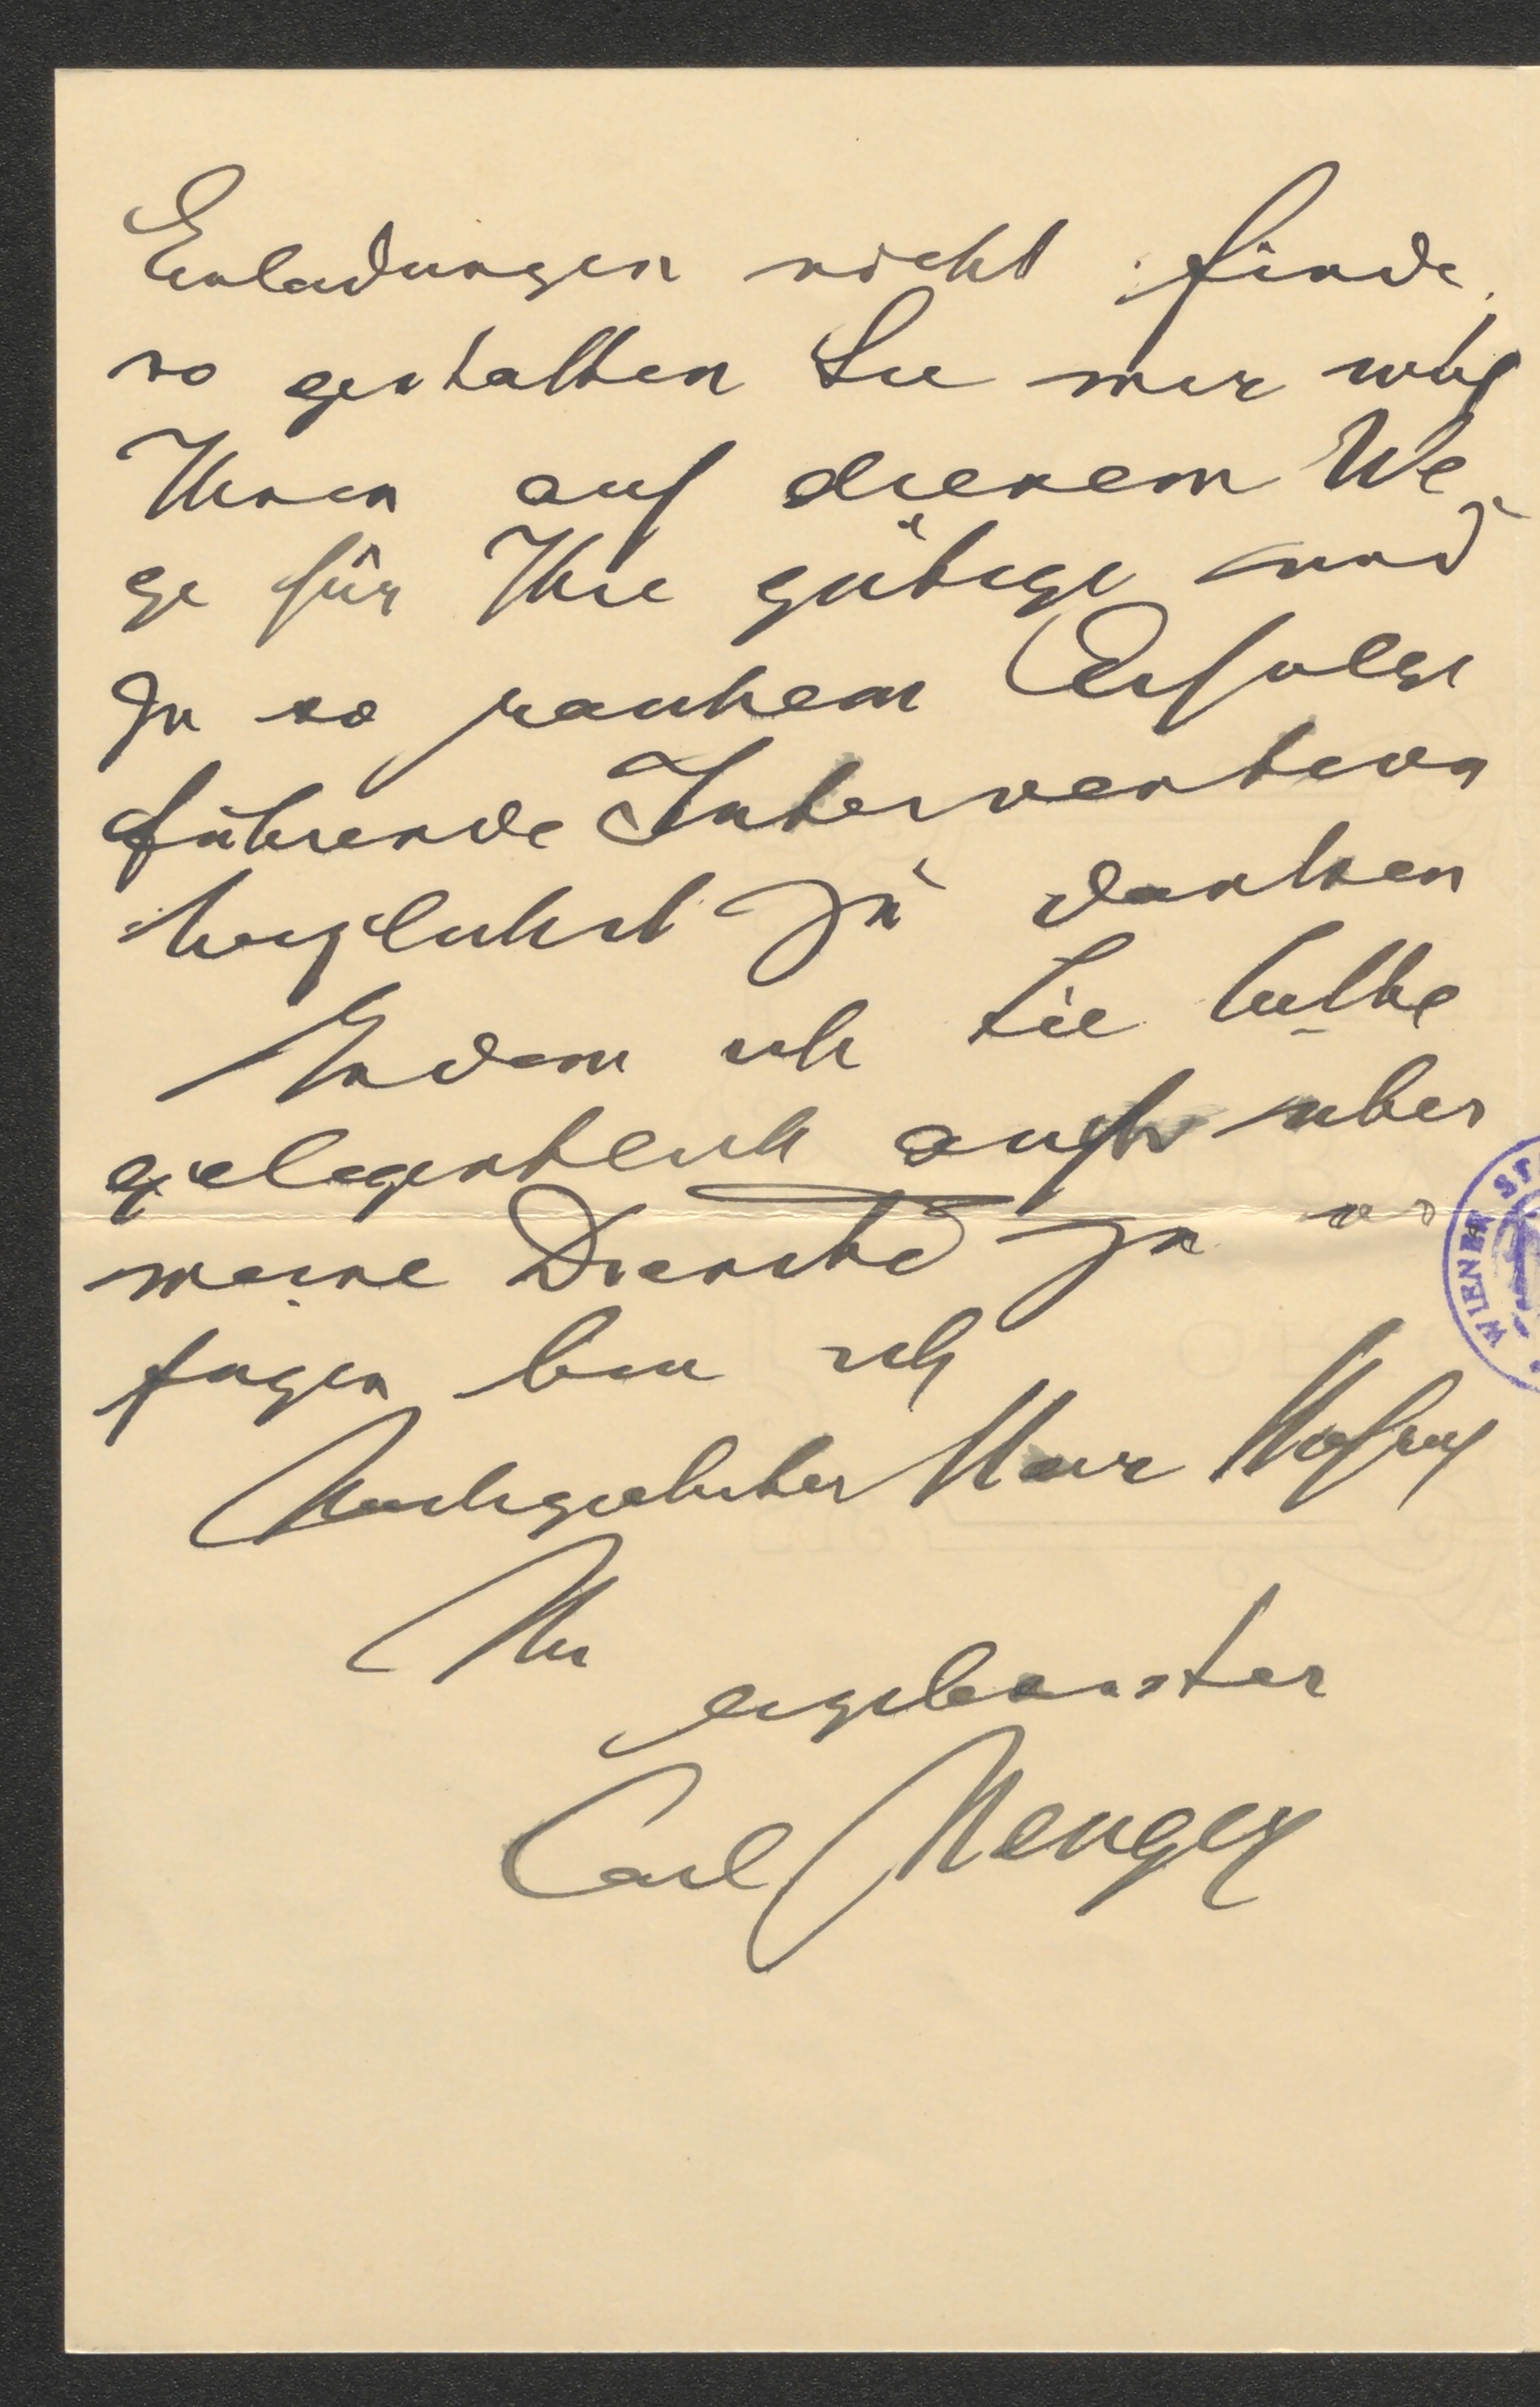 Einladungen nicht finde,
so gestatten Sie mir wohl
Ihnen auf diesem We-
ge für Ihre gütige und
zu so raschem Erfolge
führende Intervention
herzlichst zu danken
Indem ich Sie bitte
gelegentlich auch über
meine Dienste zu ver
fügen bin ich
Hochgeehrter Herr Hofrat
Ihr
ergebenster
Carl Menger
WIENER ST